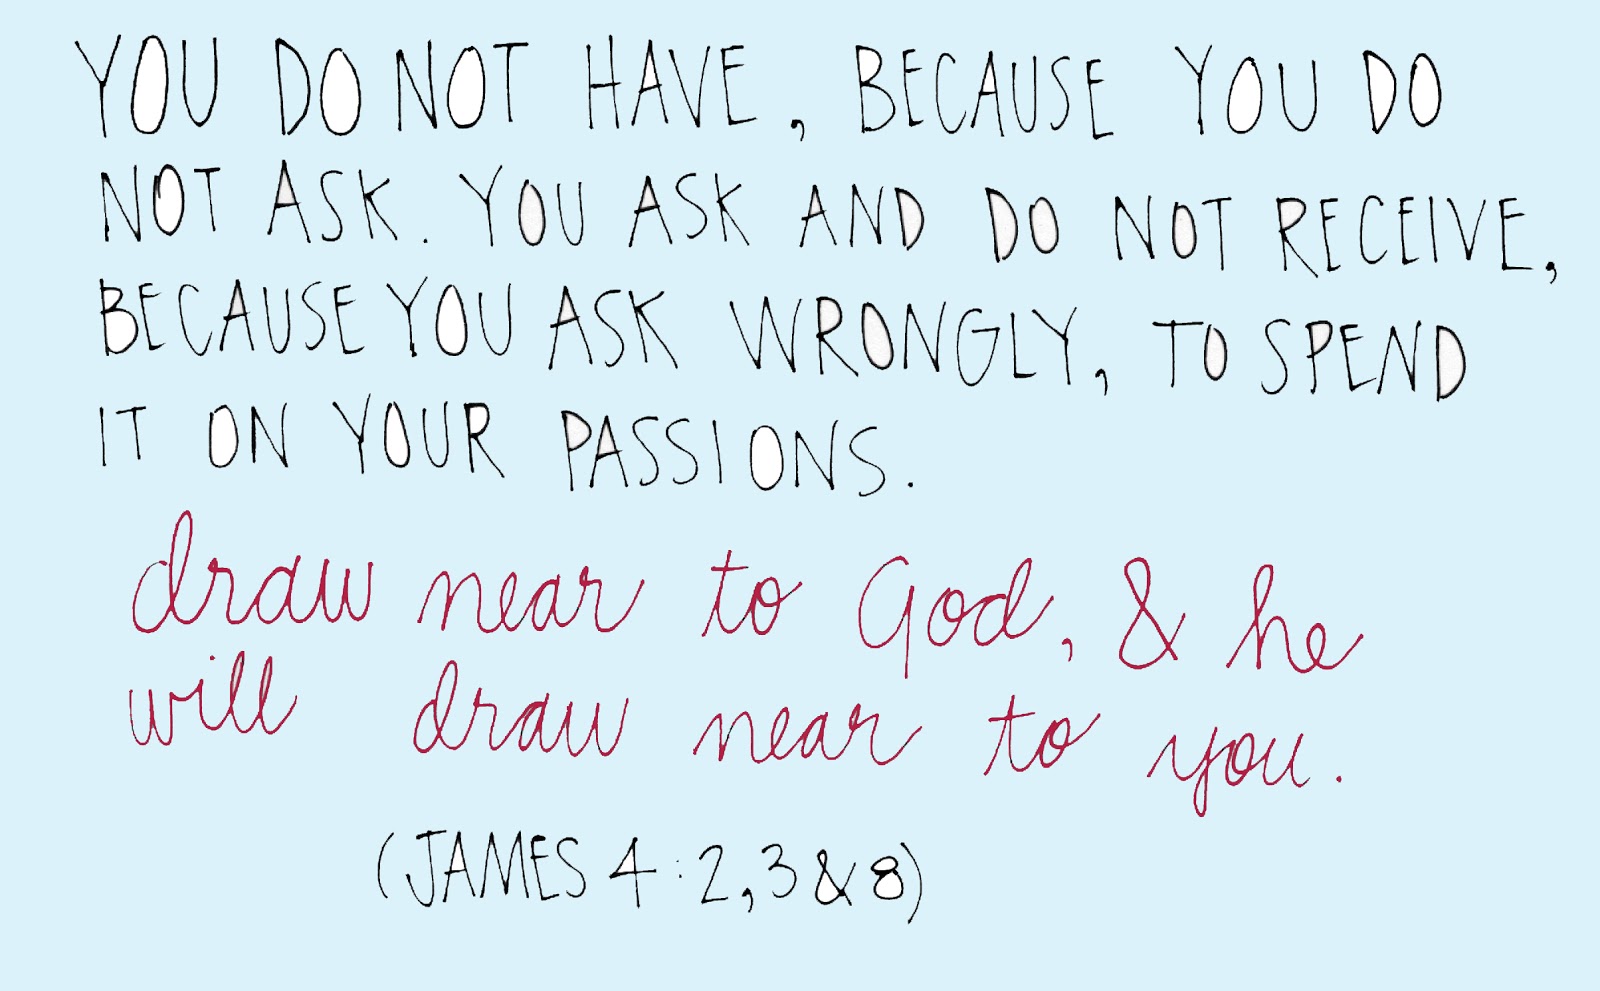 YOU DO NOT HAVE, BECAUSE YOU DO
NOT ASK. YOU ASK AND DO NOT RECEIVE,
BECAUSE YOU ASK WRONGLY, TO SPEND
IT ON YOUR PASSIONS.
draw near to God, & he
will draw near to you.
(JAMES 4:2,3&8)